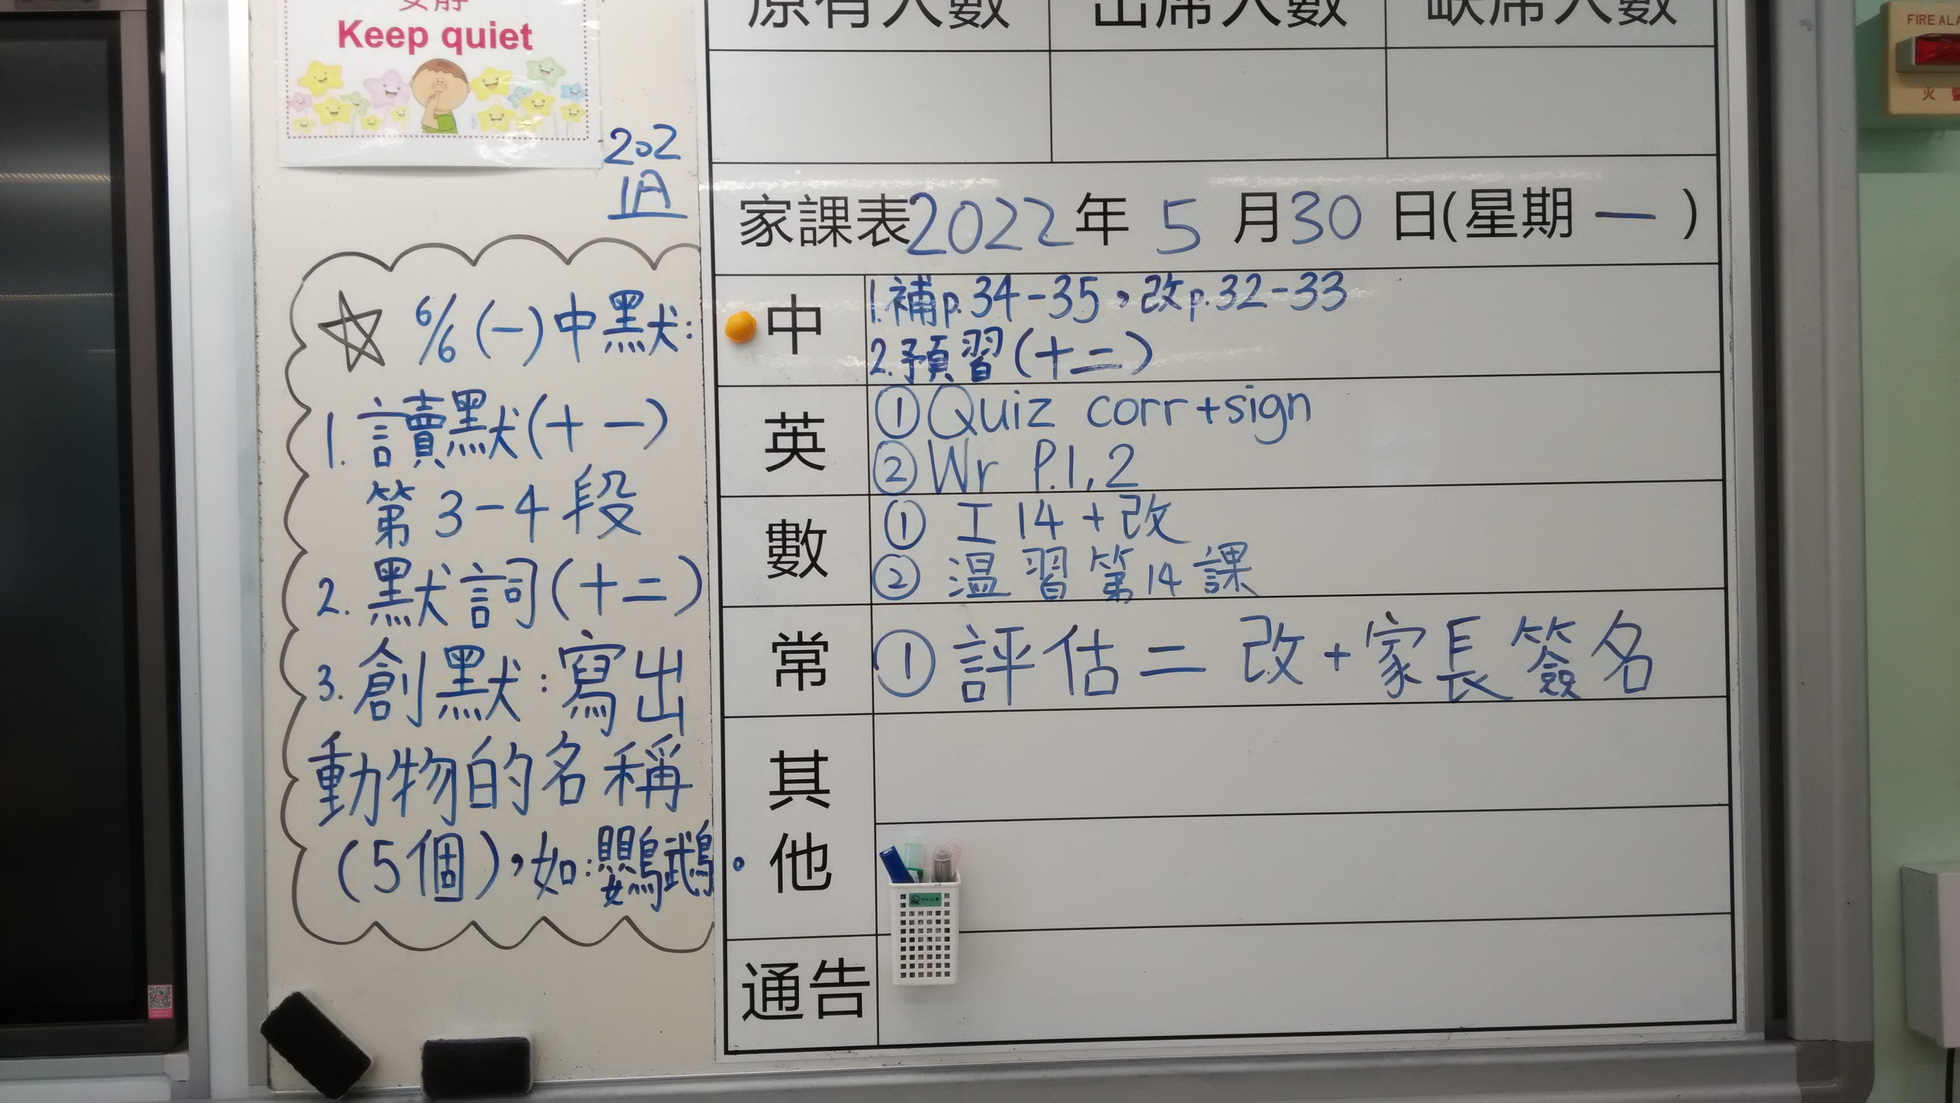 安靜
Keep quiet
202
1A
6/6(一)中默:
1. 讀默(十一)
第3-4段
2. 默詞(十二)
3. 創默:寫出
動物的名稱
(5個),如:鸚鵡。
原有人數 出席人數 缺席人數
家課表2022年5月30日(星期一)
中
1.補p.34-35,改p.32-33
2.預習(十二)
英
①Quiz corr+sign
②Wr P.1,2
數
① 工14+改
② 温習第14課
常
①評估二 改+家長簽名
其他
通告
FIRE ALA
火警